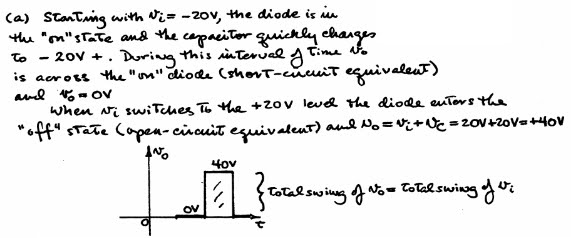 (a) Starting with vi = -20V, the diode is in
the "on" state and the capacitor quickly charges
to - 20V +. During this interval of time vo
is across the "on" diode (short-circuit equivalent)
and vo = 0V
When vi switches to the +20V level the diode enters the
"off" state (open-circuit equivalent) and vo = vi + vc = 20V + 20V = +40V
vo
40V
total swing of vo = total swing of vi
0V
0
t